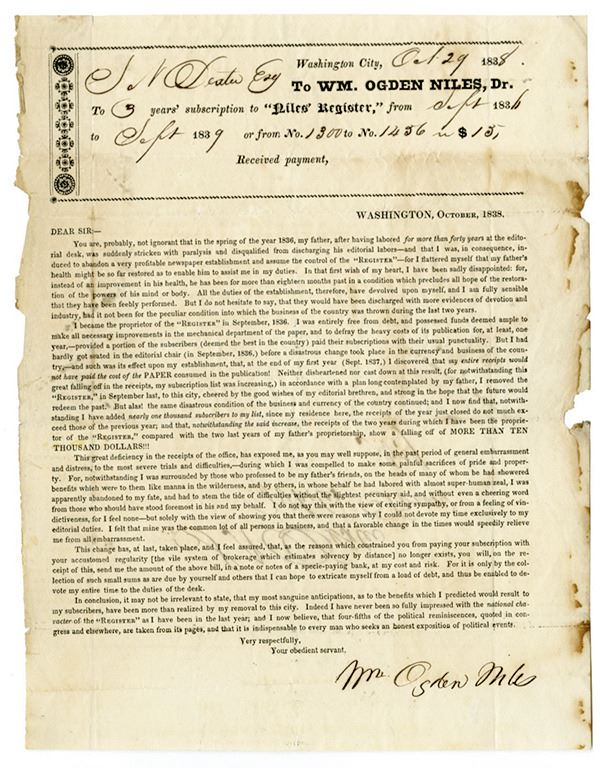 Washington City, Oct. 29 1838.
S N Dexter Esq To WM. OGDEN NILES, Dr.
To 3 years' subscription to "Niles' Register," from Sept 1836
to Sept 1839 or from No. 1300 to No. 1456 $15,
Received payment,
WASHINGTON, OCTOBER, 1838.
DEAR SIR:—
You are, probably, not ignorant that in the spring of the year 1836, my father, after having labored for more than forty years at the edito-
rial desk, was suddenly stricken with paralysis and disqualified from discharging his editorial labors—and that I was, in consequence, in-
duced to abandon a very profitable newspaper establishment and assume the control of the "REGISTER"—for I flattered myself that my father's
health might be so far restored as to enable him to assist me in my duties. In that first wish of my heart, I have been sadly disappointed: for,
instead of an improvement in his health, he has been for more than eighteen months past in a condition which precludes all hope of the restora-
tion of the powers of his mind or body. All the duties of the establishment, therefore, have devolved upon myself, and I am fully sensible
that they have been feebly performed. But I do not hesitate to say, that they would have been discharged with more evidences of devotion and
industry, had it not been for the peculiar condition into which the business of the country was thrown during the last two years.
I became the proprietor of the "REGISTER" in September, 1836. I was entirely free from debt, and possessed funds deemed ample to
make all necessary improvements in the mechanical department of the paper, and to defray the heavy costs of its publication for, at least, one
year,—provided a portion of the subscribers (deemed the best in the country) paid their subscriptions with their usual punctuality. But I had
hardly got seated in the editorial chair (in September, 1836,) before a disastrous change took place in the currency and business of the coun-
try,—and such was its effect upon my establishment, that, at the end of my first year (Sept. 1837,) I discovered that my entire receipts would
not have paid the cost of the PAPER consumed in the publication! Neither disheartened nor cast down at this result, (for notwithstanding this
great falling off in the receipts, my subscription list was increasing,) in accordance with a plan long contemplated by my father, I removed the
"REGISTER," in September last, to this city, cheered by the good wishes of my editorial brethren, and strong in the hope that the future would
redeem the past. But alas! the same disastrous condition of the business and currency of the country continued; and I now find that, notwith-
standing I have added nearly one thousand subscribers to my list, since my residence here, the receipts of the year just closed do not much ex-
ceed those of the previous year; and that, notwithstanding the said increase, the receipts of the two years during which I have been the proprie-
tor of the "REGISTER," compared with the two last years of my father's proprietorship, show a falling off of MORE THAN TEN
THOUSAND DOLLARS!!!
This great deficiency in the receipts of the office, has exposed me, as you may well suppose, in the past period of general embarrassment
and distress, to the most severe trials and difficulties,—during which I was compelled to make some painful sacrifices of pride and proper-
ty. For, notwithstanding I was surrounded by those who professed to be my father's friends, on the heads of many of whom he had showered
benefits which were to them like manna in the wilderness, and by others, in whose behalf he had labored with almost super-human zeal, I was
apparently abandoned to my fate, and had to stem the tide of difficulties without the slightest pecuniary aid, and without even a cheering word
from those who should have stood foremost in his and my behalf. I do not say this with the view of exciting sympathy, or from a feeling of vin-
dictiveness, for I feel none—but solely with the view of showing you that there were reasons why I could not devote my time exclusively to my
editorial duties. I felt that mine was the common lot of all persons in business, and that a favorable change in the times would speedily relieve
me from all embarrassment.
This change has, at last, taken place, and I feel assured, that, as the reasons which constrained you from paying your subscription with
your accustomed regularity [the vile system of brokerage which estimates solvency by distance] no longer exists, you will, on the re-
ceipt of this, send me the amount of the above bill, in a note or notes of a specie-paying bank, at my cost and risk. For it is only by the col-
lection of such small sums as are due by yourself and others that I can hope to extricate myself from a load of debt, and thus be enabled to de-
vote my entire time to the duties of the desk.
In conclusion, it may not be irrelevant to state, that my most sanguine anticipations, as to the benefits which I predicted would result to
my subscribers, have been more than realized by my removal to this city. Indeed I have never been so fully impressed with the national cha-
racter of the "REGISTER" as I have been in the last year; and I now believe, that four-fifths of the political reminiscences, quoted in con-
gress and elsewhere, are taken from its pages, and that it is indispensable to every man who seeks an honest exposition of political events.
Very respectfully,
Your obedient servant,
Wm Ogden Niles